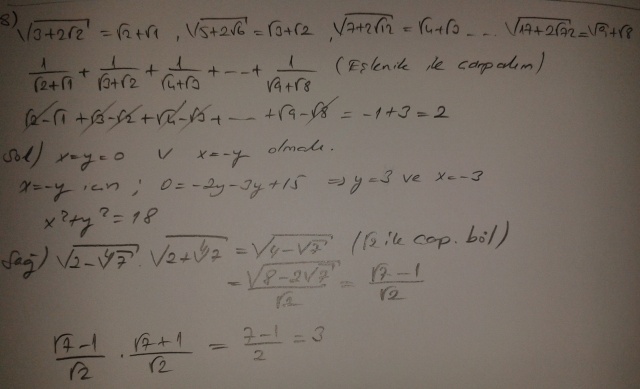 8) √(3+2√2) = √2+√1 , √(5+2√6) = √3+√2 , √(7+2√12) = √4+√3 ... √(17+2√72) = √9+√8
1/(√2+√1) + 1/(√3+√2) + 1/(√4+√3) + --- + 1/(√9+√8) (Eşlenik ile çarpalım)
√2-√1 + √3-√2 + √4-√3 + --- + √9-√8 = -1+3 = 2
Sol) x=y=0 v x=-y olmalı.
x=-y için ; 0=-2y-3y+15 ⇒ y=3 ve x=-3
x²+y²=18
Sağ) √(2-∜7) . √(2+∜7) = √(4-√7) (√2 ile çarp. böl)
= √(8-2√7)/√2 = (√7-1)/√2
(√7-1)/√2 . (√7+1)/√2 = (7-1)/2 = 3